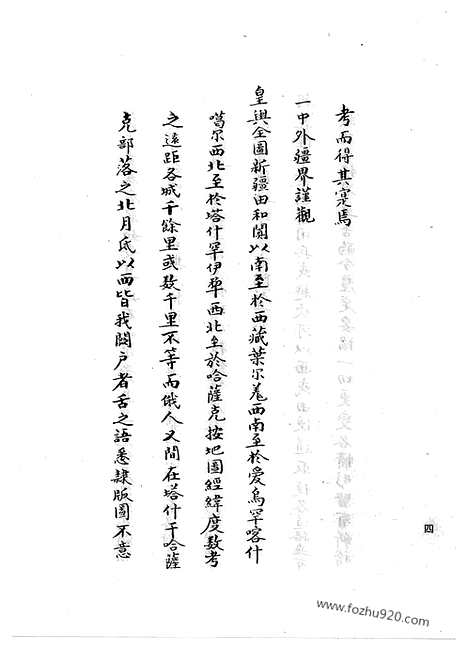 考而得其寔焉
一中外疆界謹觀
皇輿全圖新疆由和闐以南至於西藏葉尔羌西南至於爱烏罕喀什
噶尔西北至於塔什罕伊犂西北至於哈薩克按地圖經緯度数考
之遠距各城千餘里或数千里不等而俄人又間在塔什干哈薩
克部落之北月氏以西皆我闢户者舌之語悉隸版圖不意
四
www.fozhu920.com